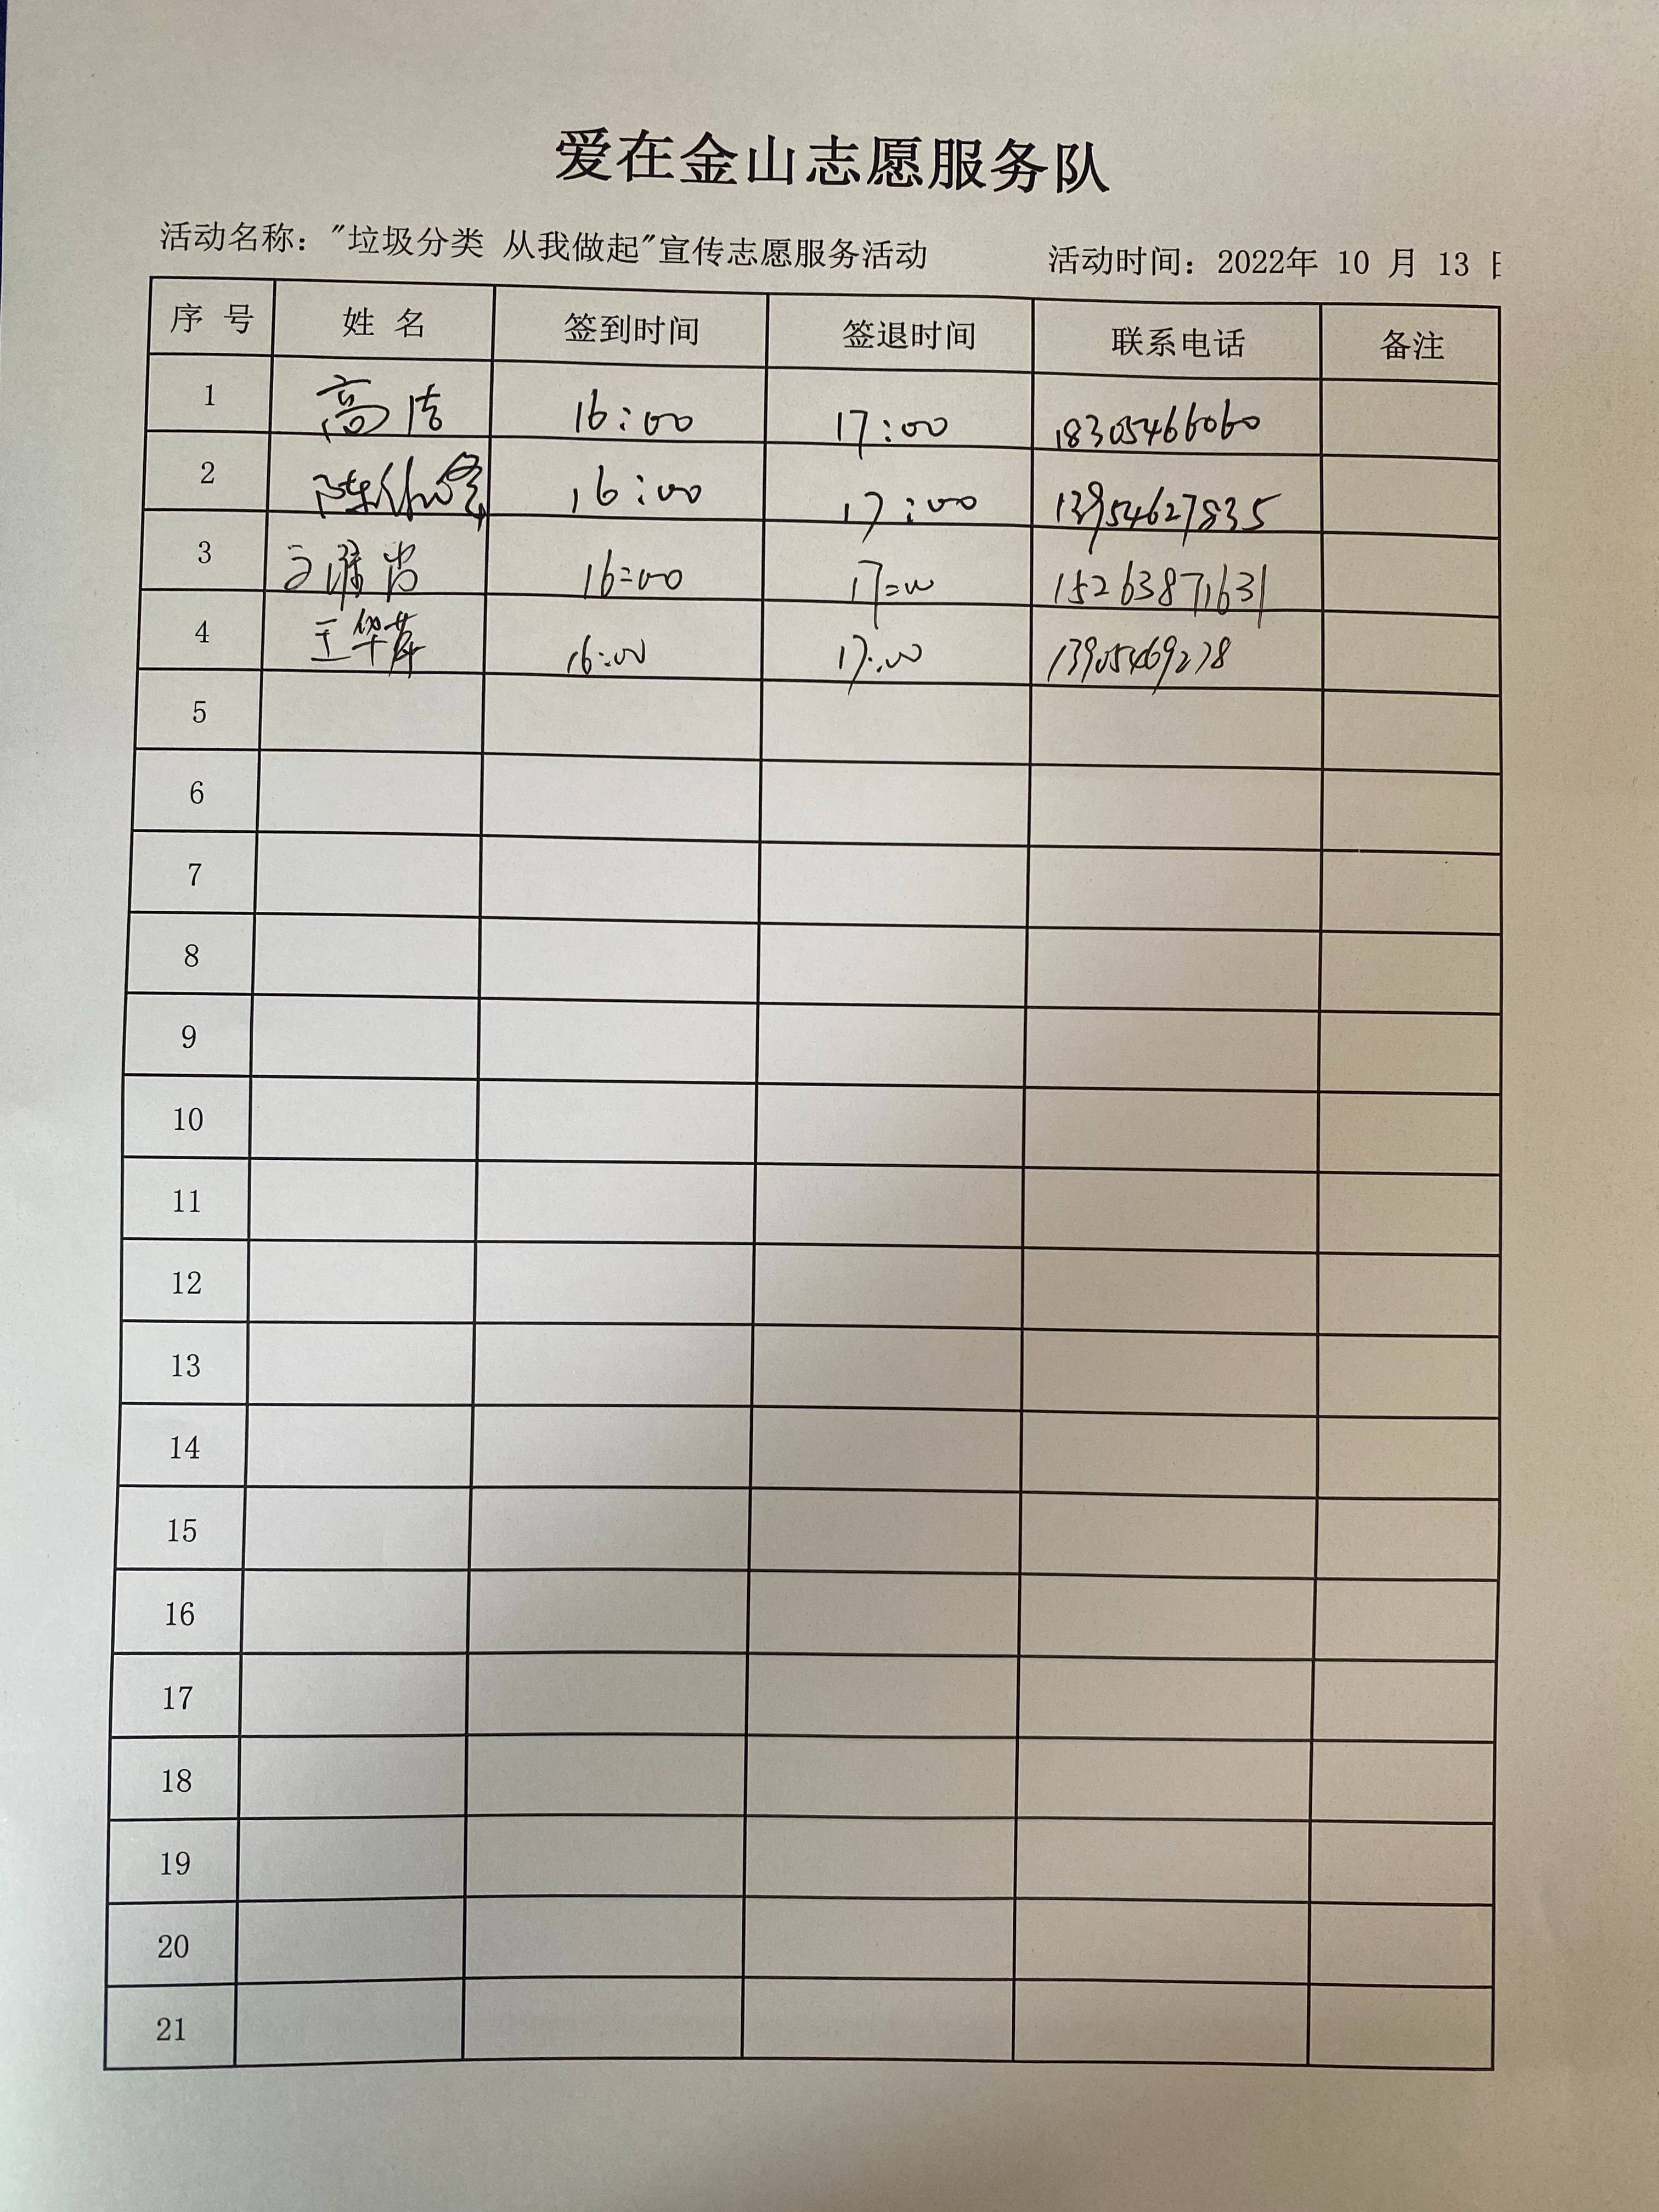 爱在金山志愿服务队
活动名称："垃圾分类 从我做起"宣传志愿服务活动 活动时间：2022年 10 月 13 日
序 号 姓 名 签到时间 签退时间 联系电话 备注
1 高洁 16:00 17:00 18305466060
2 陈 16:00 17:00 13954627835
3 16:00 17:00 15263871631
4 王华 16:00 17:00 13905469278
5
6
7
8
9
10
11
12
13
14
15
16
17
18
19
20
21